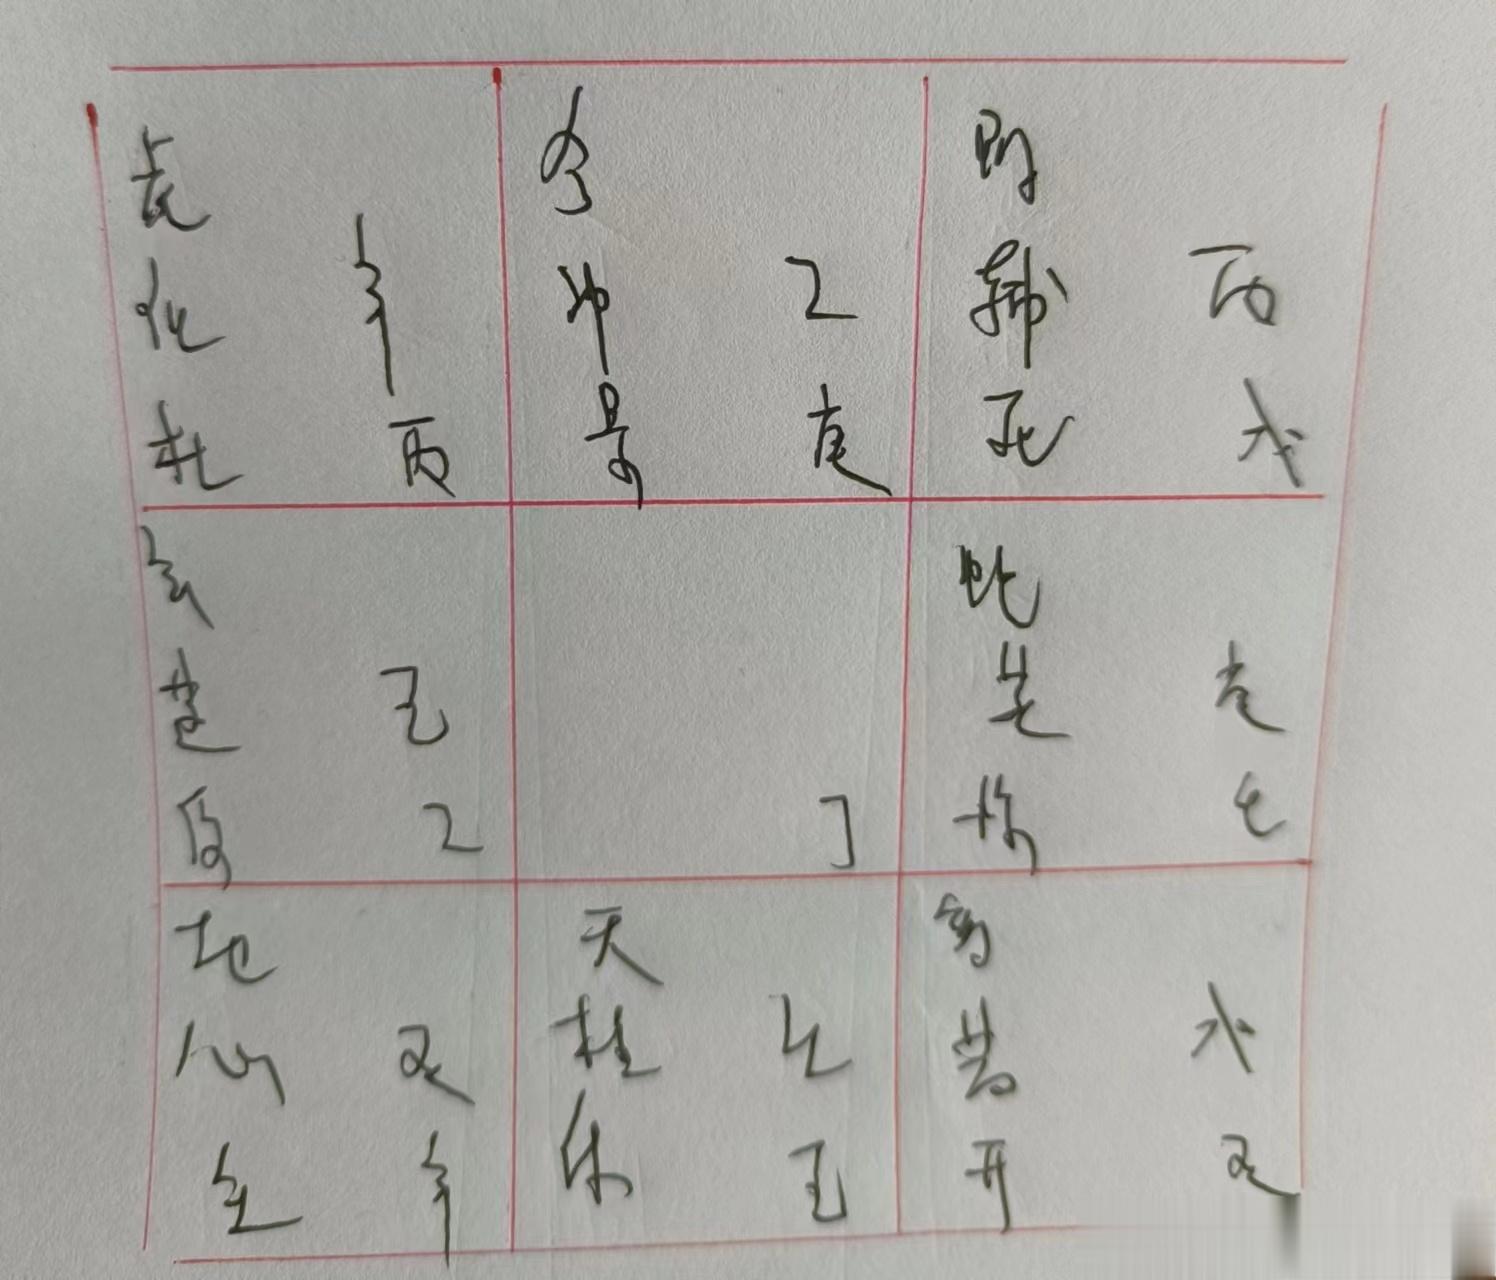 虎 合 阴
任 辛 冲 乙 辅 丙
杜 丙 景 庚 死 戊
玄 蛇
蓬 己 英 庚
伤 乙 丁 惊 壬
地 天 符
心 癸 柱 壬 芮 戊
生 辛 休 己 开 癸